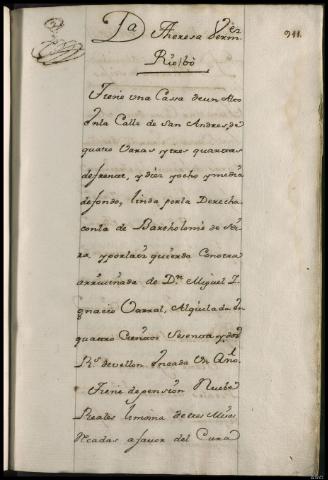 Da Theresa Berm.ez 941.
Riobò
Tiene una Cassa de un Alto
en la Calle de San Andres, de
quatro Varas y tres quartas
de frente, y diez y ocho y media
de fondo, linda por la Derecha
con la de Bartholomè de
y por la Yzquierda con otra
arruinada de Dn. Miguel Y
gnacio Varral, Alquilada en
quatro Cientos Sesenta y dos
Rs. de vellon en cada Un Año
Tiene de pension Nuebe
Reales limosna de tres Missas
Rezadas a favor del Cura